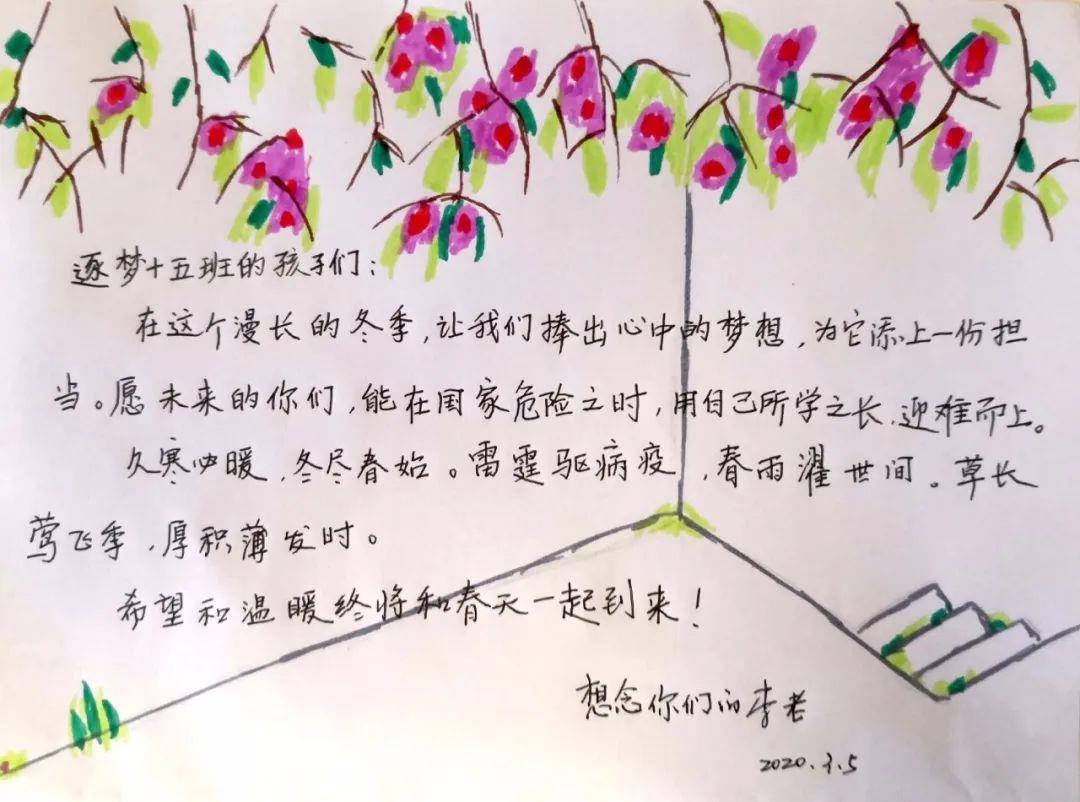 逐梦十五班的孩子们：
在这个漫长的冬季，让我们捧出心中的梦想，为它添上一份担
当。愿未来的你们，能在国家危险之时，用自己所学之长，迎难而上。
久寒必暖，冬尽春始。雷霆驱病疫，春雨濯世间。草长
莺飞季，厚积薄发时。
希望和温暖终将和春天一起到来！
想念你们的李老
2020.3.5